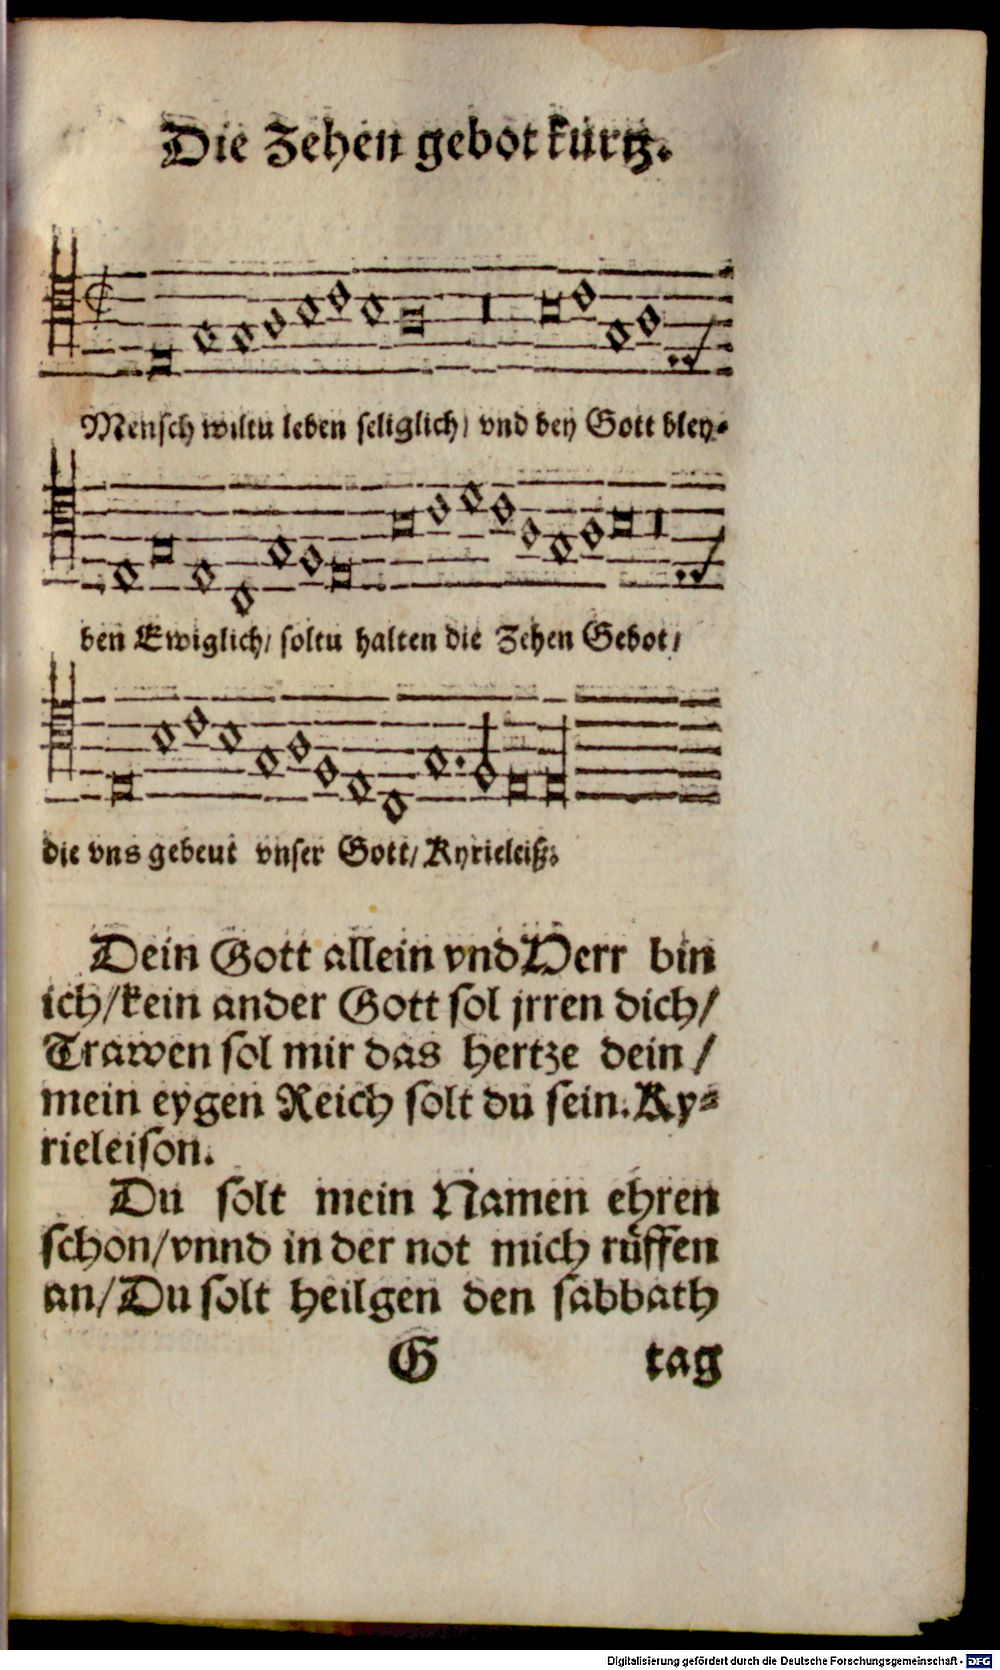 Die Zehen gebot kurtz.
Mensch wiltu leben seliglich/ vnd bey Gott bley⸗
ben Ewiglich/ soltu halten die Zehen Gebot/
die vns gebeut vnser Gott/ Kyrieleiß.
Dein Gott allein vnd Herr bin
ich/kein ander Gott sol jrren dich/
Trawen sol mir das hertze dein/
mein eygen Reich solt du sein. Ky⸗
rieleison.
Du solt mein Namen ehren
schon/vnnd in der not mich rüffen
an/Du solt heilgen den sabbath
G tag
Digitalisierung gefördert durch die Deutsche Forschungsgemeinschaft - DFG